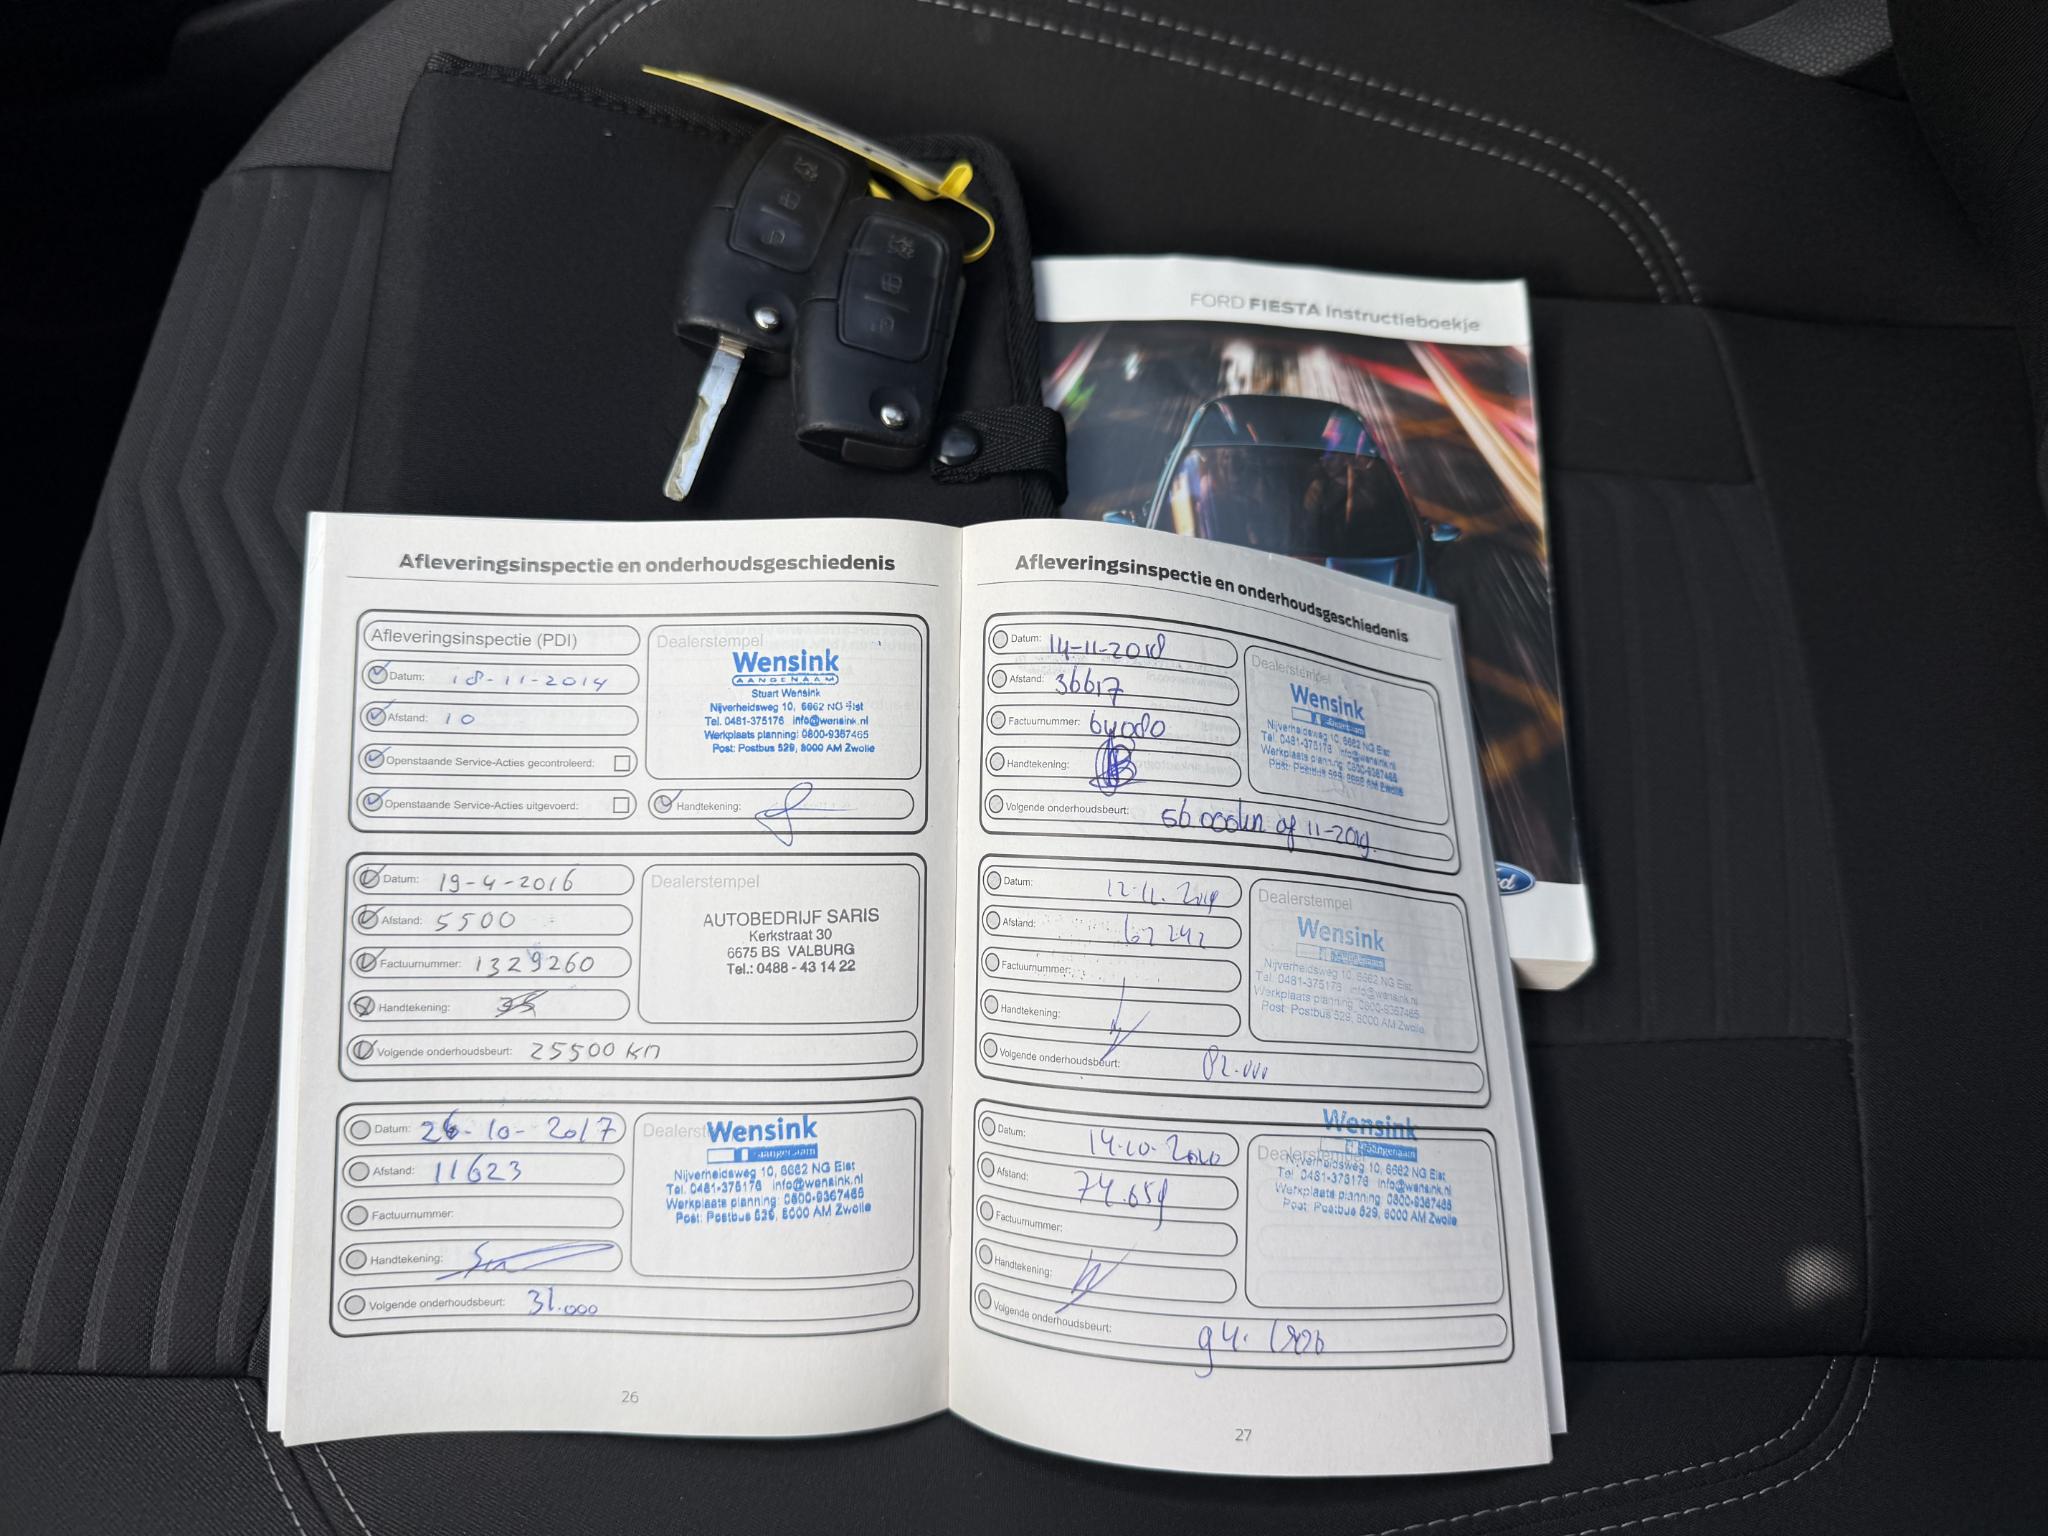 FORD FIESTA Instructieboekje
Afleveringsinspectie en onderhoudsgeschiedenis
Afleveringsinspectie (PDI)
Datum: 18-11-2014
Afstand: 10
Openstaande Service-Acties gecontroleerd:
Openstaande Service-Acties uitgevoerd:
Dealerstempel
Wensink
AANGENAAM
Stuart Wensink
Nijverheidsweg 10, 6662 NG Elst
Tel. 0481-375176 info@wensink.nl
Werkplaats planning: 0800-9367465
Post: Postbus 529, 8000 AM Zwolle
Handtekening:
Datum: 19-4-2016
Afstand: 5500
Factuurnummer: 1329260
Handtekening:
Volgende onderhoudsbeurt: 25500 KM
Dealerstempel
AUTOBEDRIJF SARIS
Kerkstraat 30
6675 BS VALBURG
Tel.: 0488 - 43 14 22
Datum: 26-10-2017
Afstand: 11623
Factuurnummer:
Handtekening:
Volgende onderhoudsbeurt: 31.000
Wensink
aangenaam
Nijverheidsweg 10, 6662 NG Elst
Tel. 0481-375176 info@wensink.nl
Werkplaats planning: 0800-9367465
Post: Postbus 529, 8000 AM Zwolle
26
Afleveringsinspectie en onderhoudsgeschiedenis
Datum: 14-11-2018
Afstand: 36617
Factuurnummer:
Handtekening:
Volgende onderhoudsbeurt: 56.000km of 11-2019.
Dealerstempel
Wensink
aangenaam
Nijverheidsweg 10, 6662 NG Elst
Tel. 0481-375176 info@wensink.nl
Werkplaats planning: 0800-9367465
Post: Postbus 529, 8000 AM Zwolle
Datum: 12-11-2019
Afstand: 62242
Factuurnummer:
Handtekening:
Volgende onderhoudsbeurt: 82.000
Dealerstempel
Wensink
aangenaam
Nijverheidsweg 10, 6662 NG Elst
Tel. 0481-375176 info@wensink.nl
Werkplaats planning: 0800-9367465
Post: Postbus 529, 8000 AM Zwolle
Datum: 14-10-2020
Afstand: 74.659
Factuurnummer:
Handtekening:
Volgende onderhoudsbeurt: 94.
Dealerstempel
Wensink
aangenaam
Nijverheidsweg 10, 6662 NG Elst
Tel. 0481-375176 info@wensink.nl
Werkplaats planning: 0800-9367465
Post: Postbus 529, 8000 AM Zwolle
27